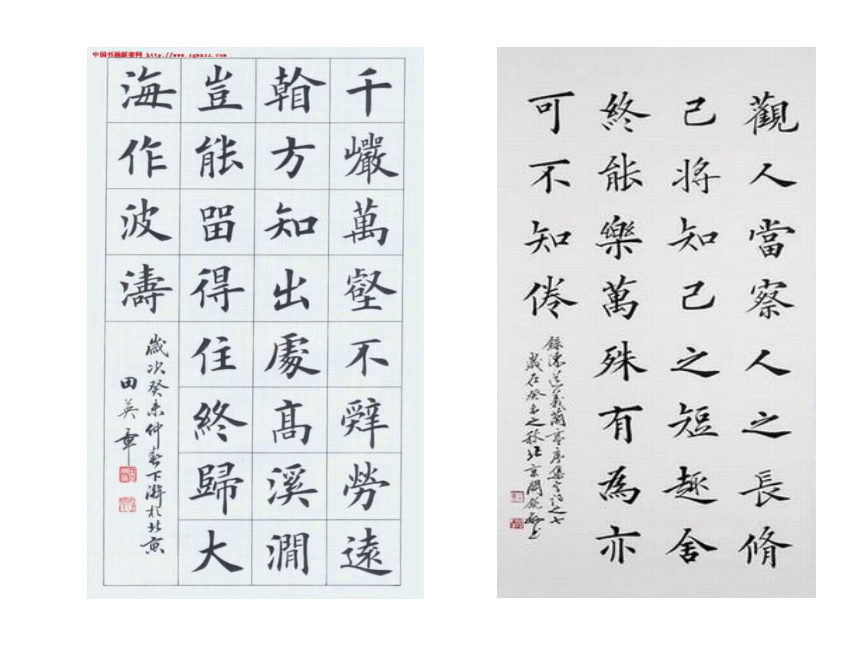 中国书画展赛网
千巖萬壑不辤勞遠
看方知出處高溪澗
豈能畱得住終歸大
海作波濤
歲次癸未仲春下澣於北京
田英章
觀人當察人之長脩
己將知己之短趣舍
終能樂萬殊有為亦
可不知倦
義蘭亭序集字詩之七
歲在癸未之秋北京